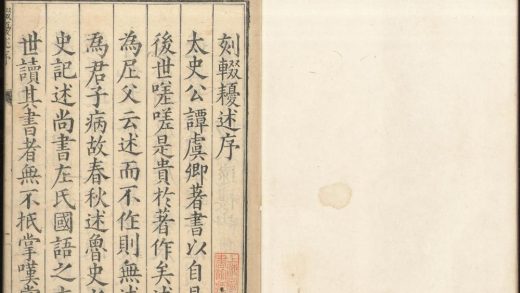 刻輟耰述序
太史公譚虞卿著書以自見
後世嗟嗟是貴於著作矣述
為屈父云述而不作則無述
為君子病故春秋述魯史
史記述尚書左氏國語之
世讀其書者無不抵掌嘆